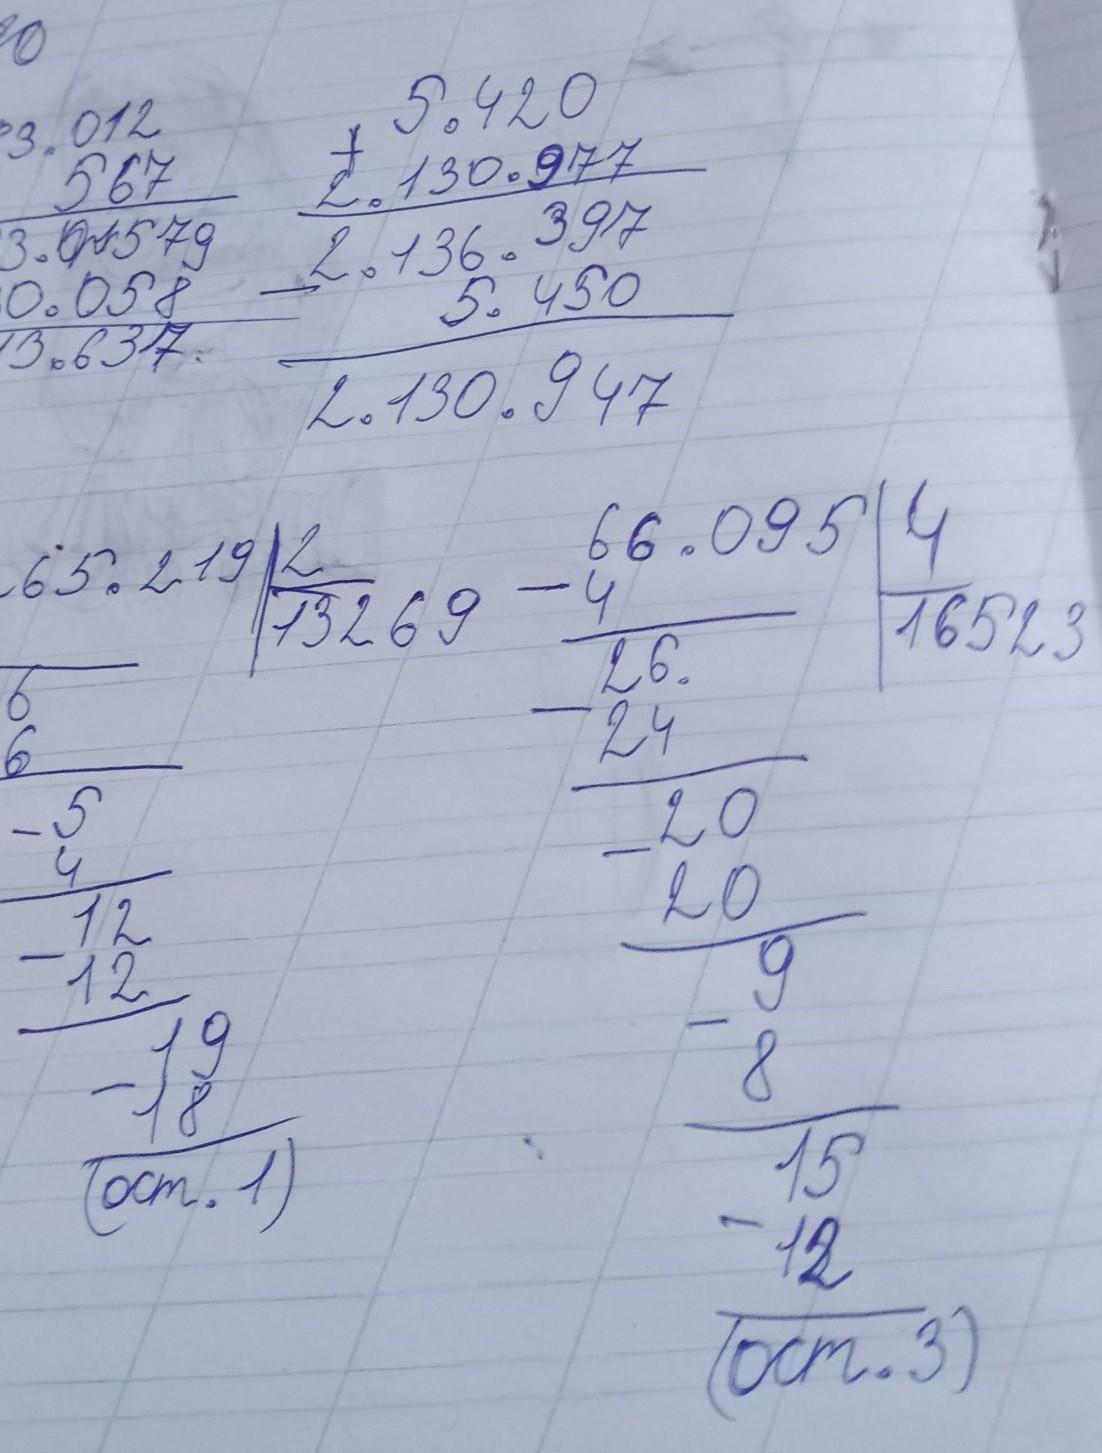 0
3.012
567
3.01579
0.058
13.637.
5.420
+
2.130.977
2.136.397
- 5.450
2.130.947
65.219 2
13269
6
6
- 5
4
12
- 12
19
- 18
(ост. 1)
66.095 4
- 4 16523
26.
- 24
20
- 20
9
- 8
15
- 12
(ост. 3)